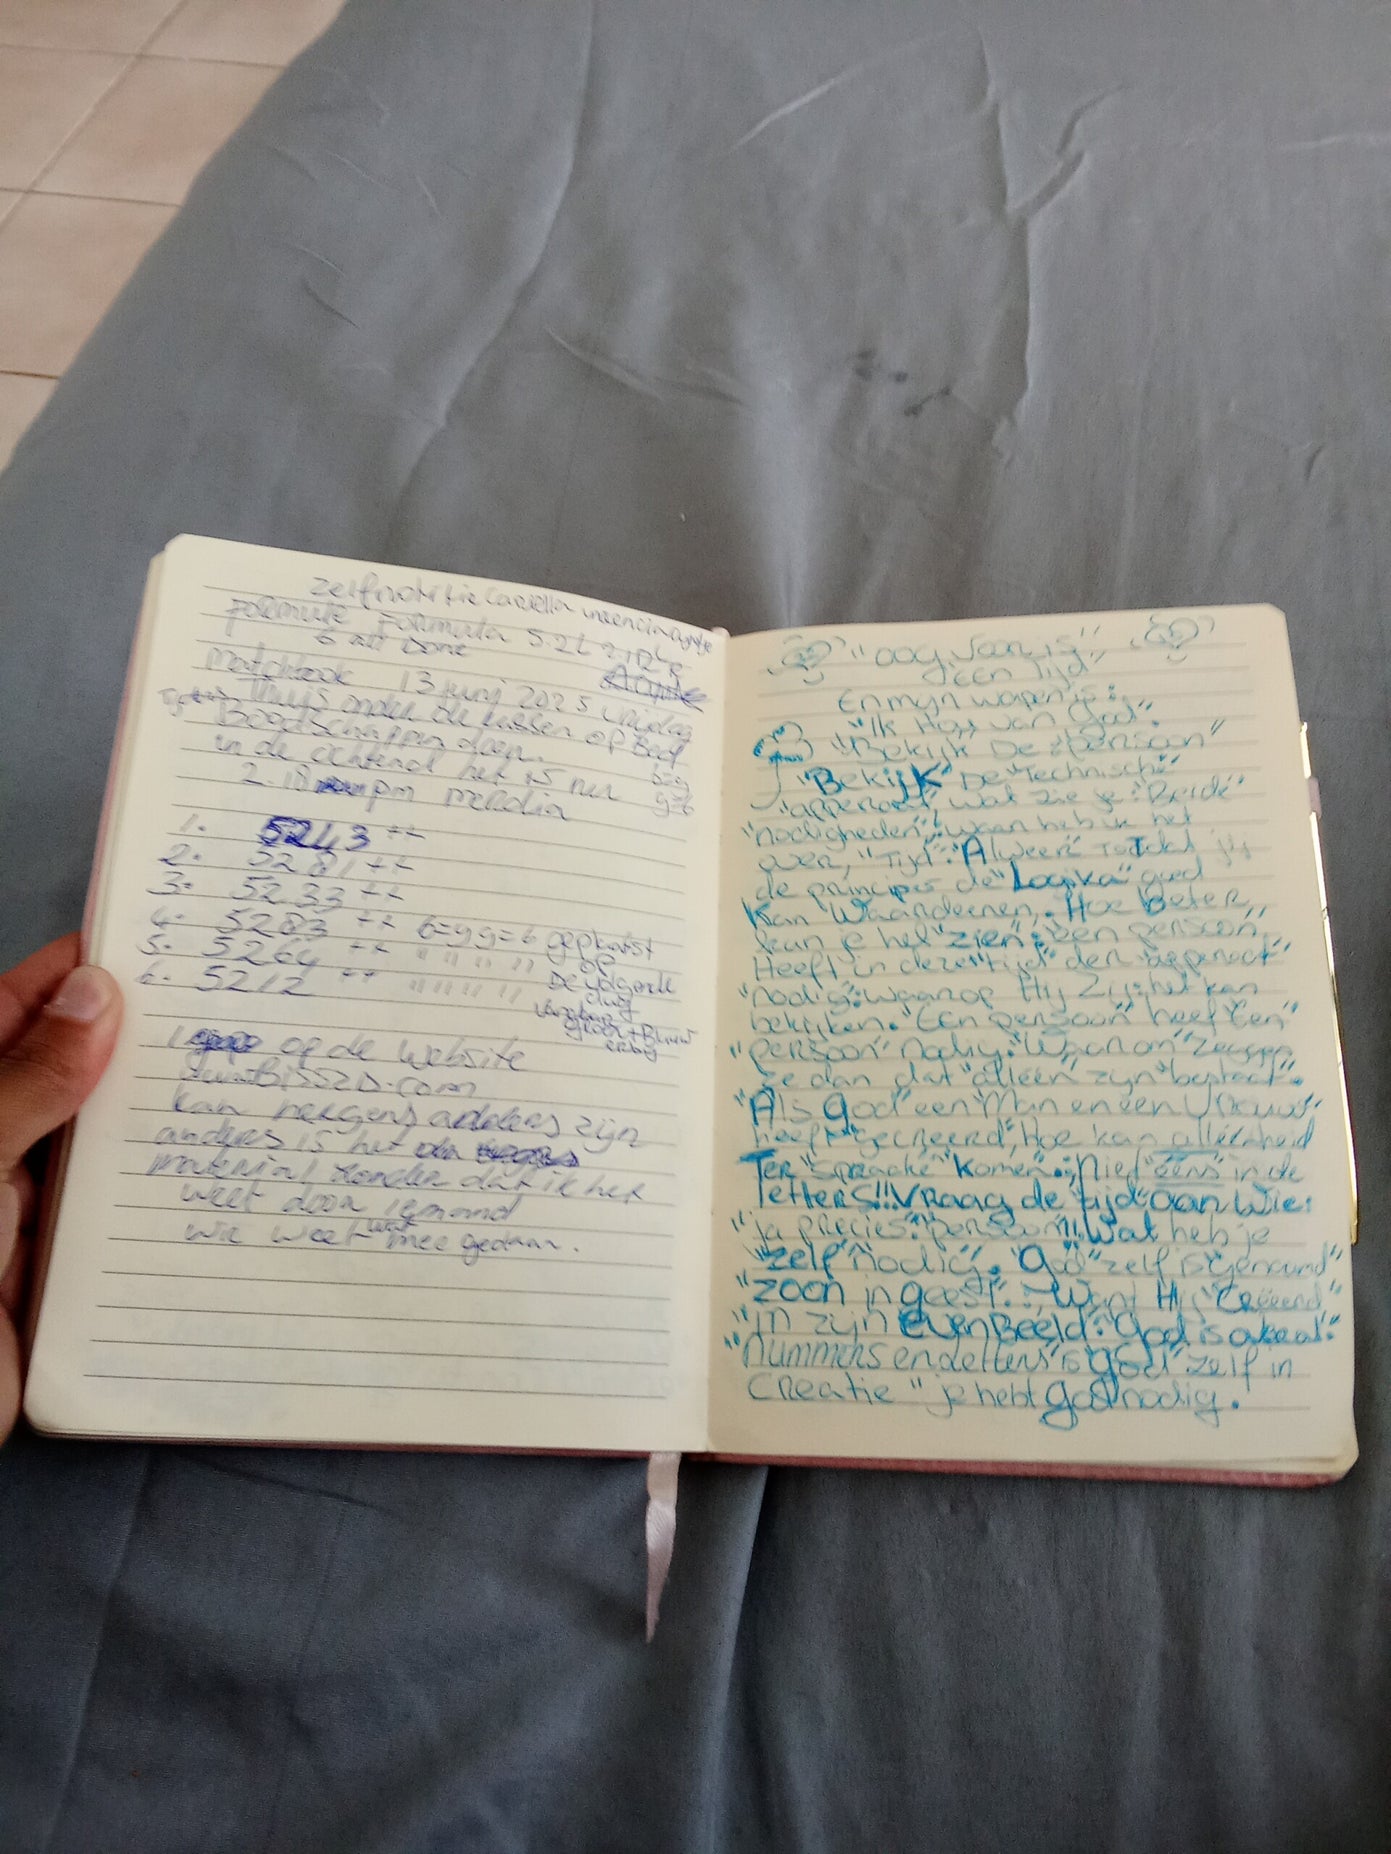 zelfnotitie
Formule Formula
6 att Done
matchbook 13 juni 2025 vrijdag
Thuis onder de lussen op Bed
Boodschappen doen.
in de ochtend het is nu b=g
2.18 pm g=6
1. 5243 ++
2. 5281 ++
3= 5233 ++
4= 5283 ++ 6=9 9=6 geplaatst
5. 5264 ++ " " " " op
6. 5212 ++ " " " " De volgende
dag
groen+Blauw
op de website
kan nergens anders zijn
anders is het
material zonder dat ik het
weet door iemand
wie weet wat mee gedaan.
"oog voor is"
"Een Tijd"
En mijn wapen is:
"Ik Hou van God".
"Bekijk De persoon"
"Bekijk" De "Technische"
"apperaat", wat zie je: "Beide"
"nodigheden"! waar heb ik het
over, "Tijd". "Alweer" Totdat jij
de principes de "Logika" goed
kan Waarderen,. Hoe beter
kan je het "zien": "een persoon"
Heeft in deze "tijd" den "apperaat"
"nodig": waarop Hij Zij het kan
bekijken. "Een persoon" heeft "Een"
"persoon" nodig. "Waarom" zeggen
ze dan dat "alleen" zijn "bestaat".
"Als God een Man en een Vrouw"
heeft "gecreëerd", Hoe kan alleenheid
Ter "sprake" komen.; Niet "eens" in de
letters!!! Vraag de tijd aan Wie:
"ja precies": "persoon"!! Wat heb je
"zelf" nodig. "God" zelf is genaamd"
"zoon in geest".: "Want Hij "Creëerd"
"in zijn EvenBeeld": God is
"Nummers en letters is god" zelf in
Creatie" je hebt god nodig.